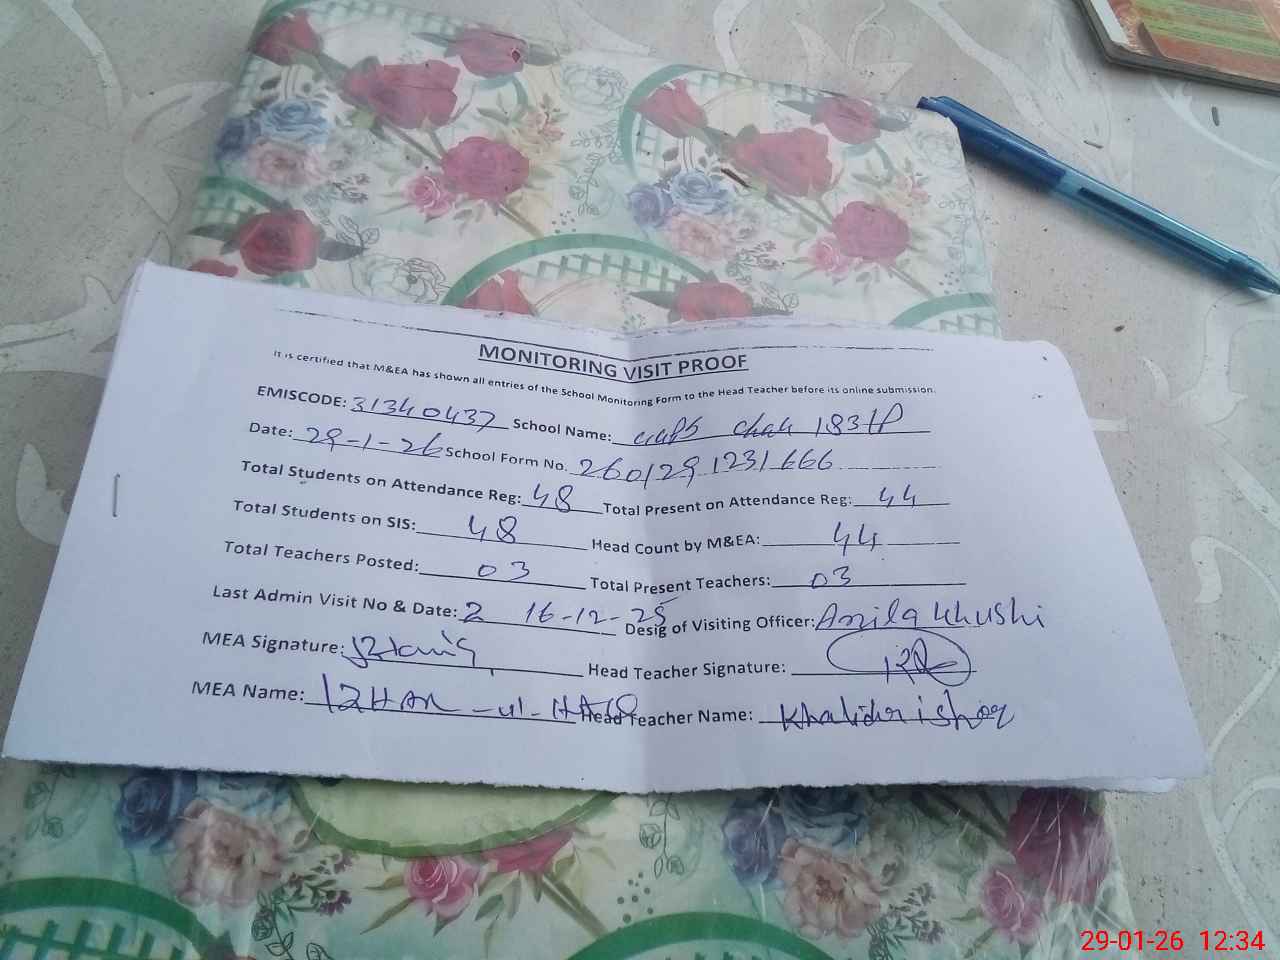 MONITORING VISIT PROOF
It is certified that M&EA has shown all entries of the School Monitoring Form to the Head Teacher before its online submission.
EMISCODE: 31340437 School Name: chak 183/P
Date: 29-1-26 School Form No. 2601291231666
Total Students on Attendance Reg: 48 Total Present on Attendance Reg: 44
Total Students on SIS: 48 Head Count by M&EA: 44
Total Teachers Posted: 03 Total Present Teachers: 03
Last Admin Visit No & Date: 2 16-12-25 Desig of Visiting Officer: Anila Khushi
MEA Signature: Head Teacher Signature:
MEA Name: IZHAR-ul-HAQ Head Teacher Name: Khalida
29-01-26 12:34